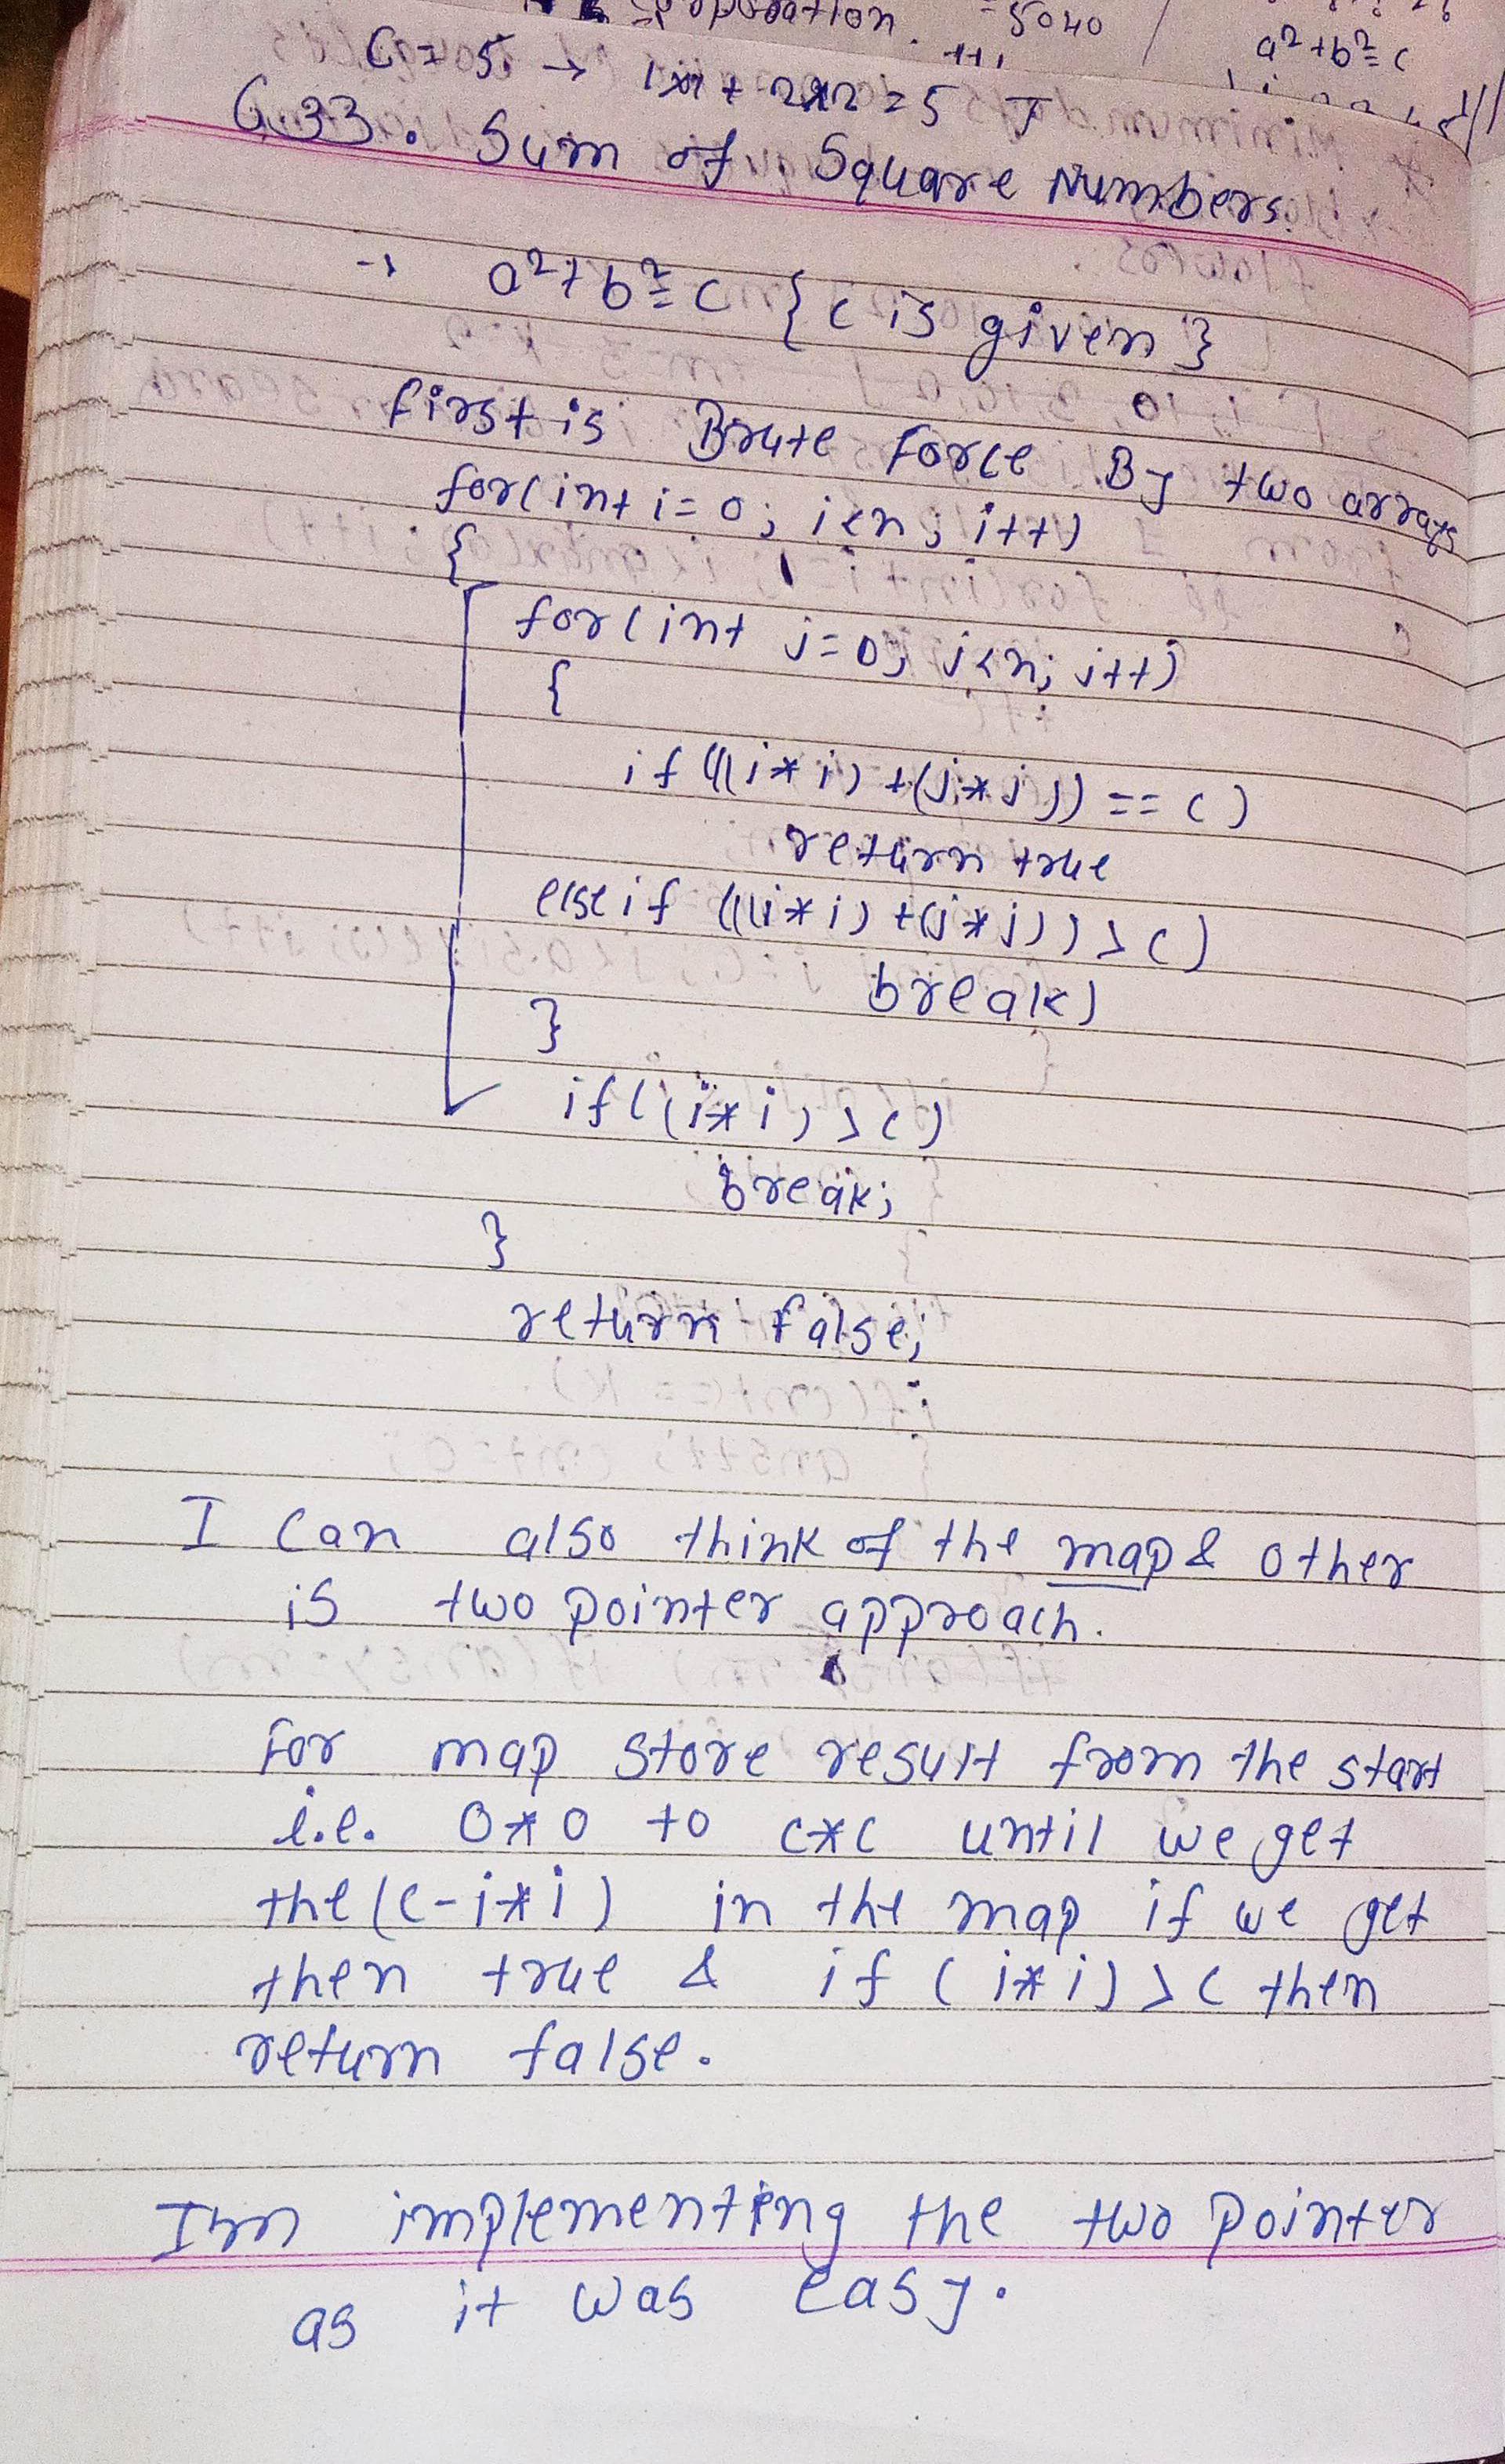 5040
a²+b²=c
C = 5 → 1*1 + 2*2 = 5 T
633. Sum of Square Numbers.
→ a²+b²=c {c is given}
first is Brute force By two arrays
for(int i=0; i<n; i++)
{
for(int j=0; j<n; j++)
{
if(((i*i)+(j*j))==c)
return true
else if (((i*i)+(j*j))>c)
break;
}
if((i*i)>c)
break;
}
return false;
I can also think of the map & other
is two pointer approach.
for map store result from the start
i.e. 0*0 to c*c until we get
the (c-i*i) in the map if we get
then true & if (i*i)>c then
return false.
Im implementing the two pointer
as it was easy.